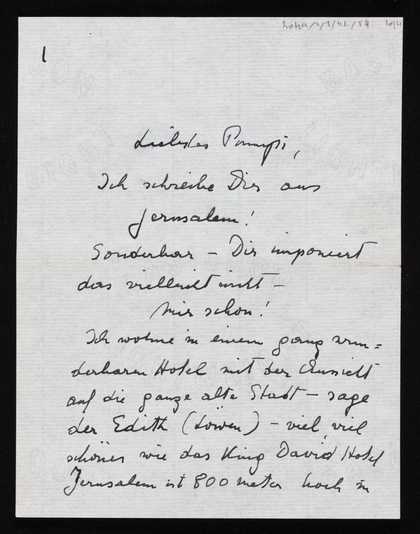 1
Liebstes Pampi,
Ich schreibe Dir aus
Jerusalem!
Sonderbar – Dir imponiert
das vielleicht nicht –
Mir schon!
Ich wohne in einem ganz wun=
derbaren Hotel mit der Aussicht
auf die ganze alte Stadt – sage
der Edith (Löwen) – viel viel
schöner wie das King David Hotel
Jerusalem ist 800 meter hoch in